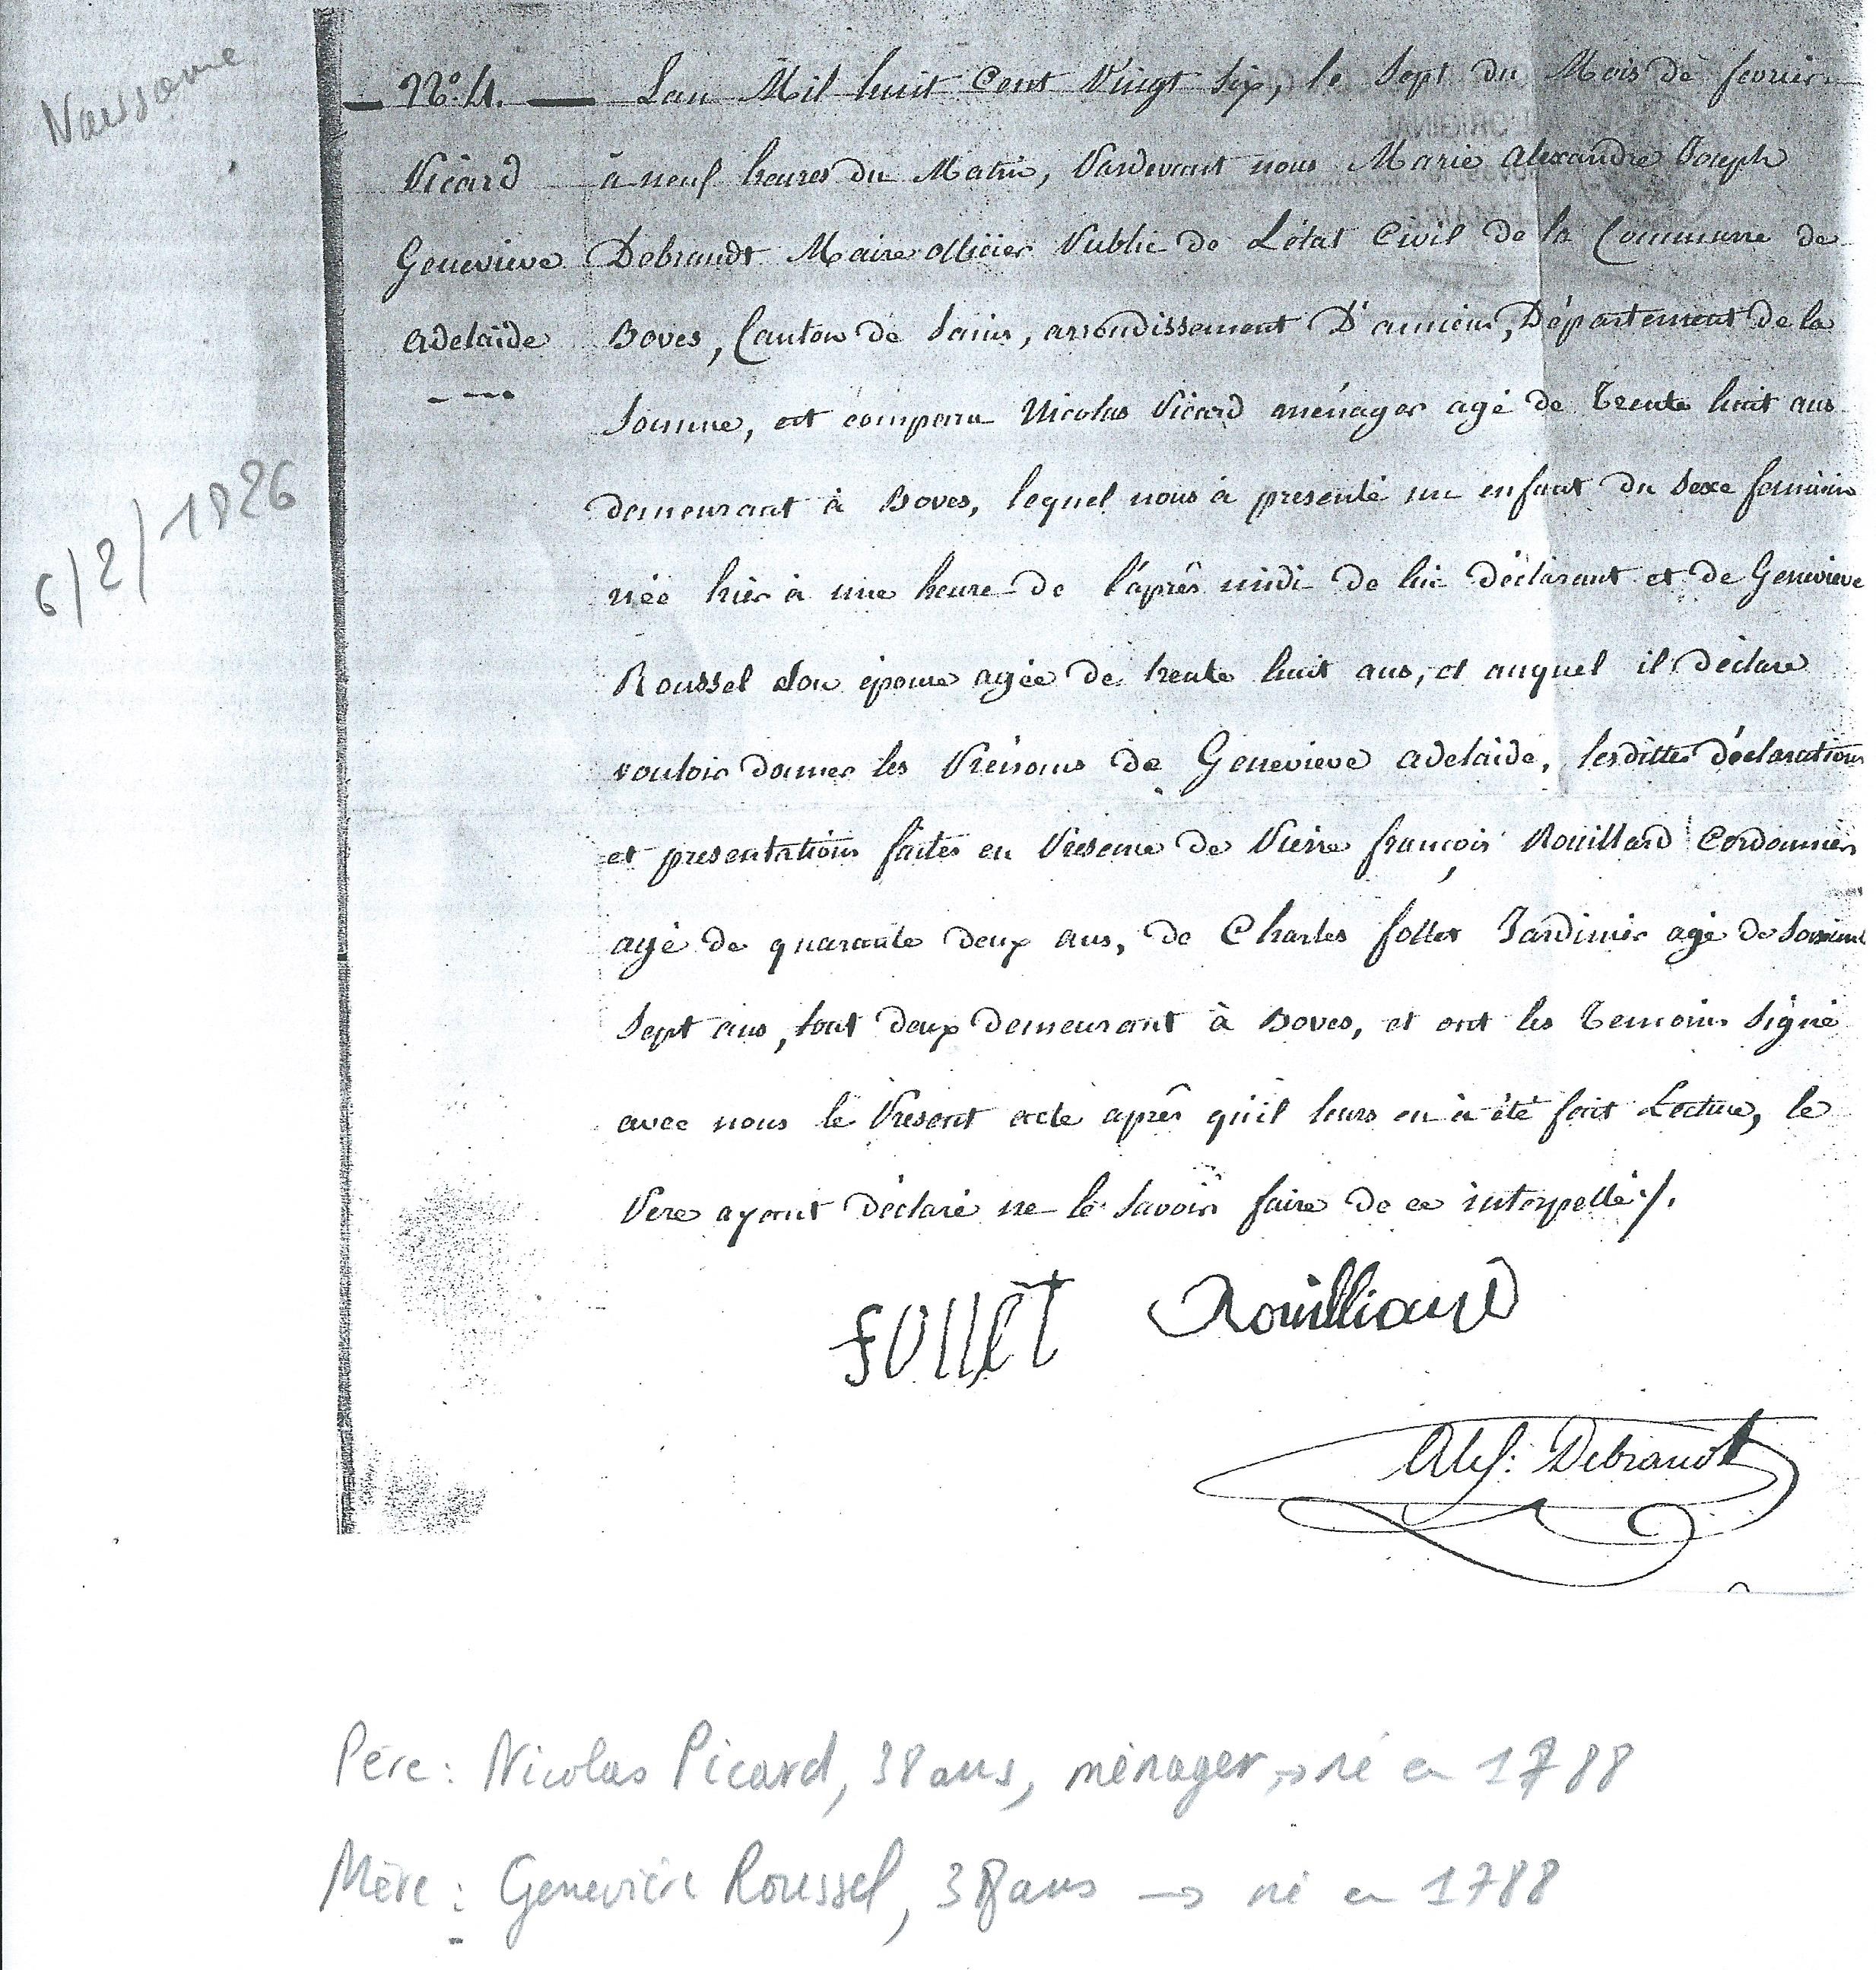 Naissance
N.º 4. Lan Mil huit Cent Vingt Six, le Sept du Mois de fevrier
Picard à neuf heures du Matin, Pardevant nous Marie Alexandre Joseph
Genevieve Debrandt Maire officier Public de L'état Civil de la Commune de
adelaïde Boves, Canton de Sains, arrondissement D'amiens, Département de la
Somme, est comparu Nicolas Picard ménager agé de Trente huit ans
demeurant à Boves, lequel nous à presenté un enfant du Sexe feminin
6/2/1826
née hier à une heure de l'après midi de lui déclarant et de Genevieve
Roussel Son épouse agée de trente huit ans, et auquel il déclare
vouloir donner les Prénoms de Genevieve adelaïde, lesdittes déclarations
et presentations faites en Presence de Pierre françois Rouillard Cordonnier
agé de quarante deux ans, de Charles follet Jardinier agé de
Sept ans, tout deux demeurant à Boves, et ont les Temoins Signé
avec nous le Present acte après qu'il leurs en à été fait Lecture, le
Pere ayant déclaré ne le Savoir faire de ce interpellé ./.
FOLLET Rouilliard
Alex: Debrandt
Père : Nicolas Picard, 38 ans, ménager, → né en 1788
Mère : Genevière Roussel, 38 ans → né en 1788